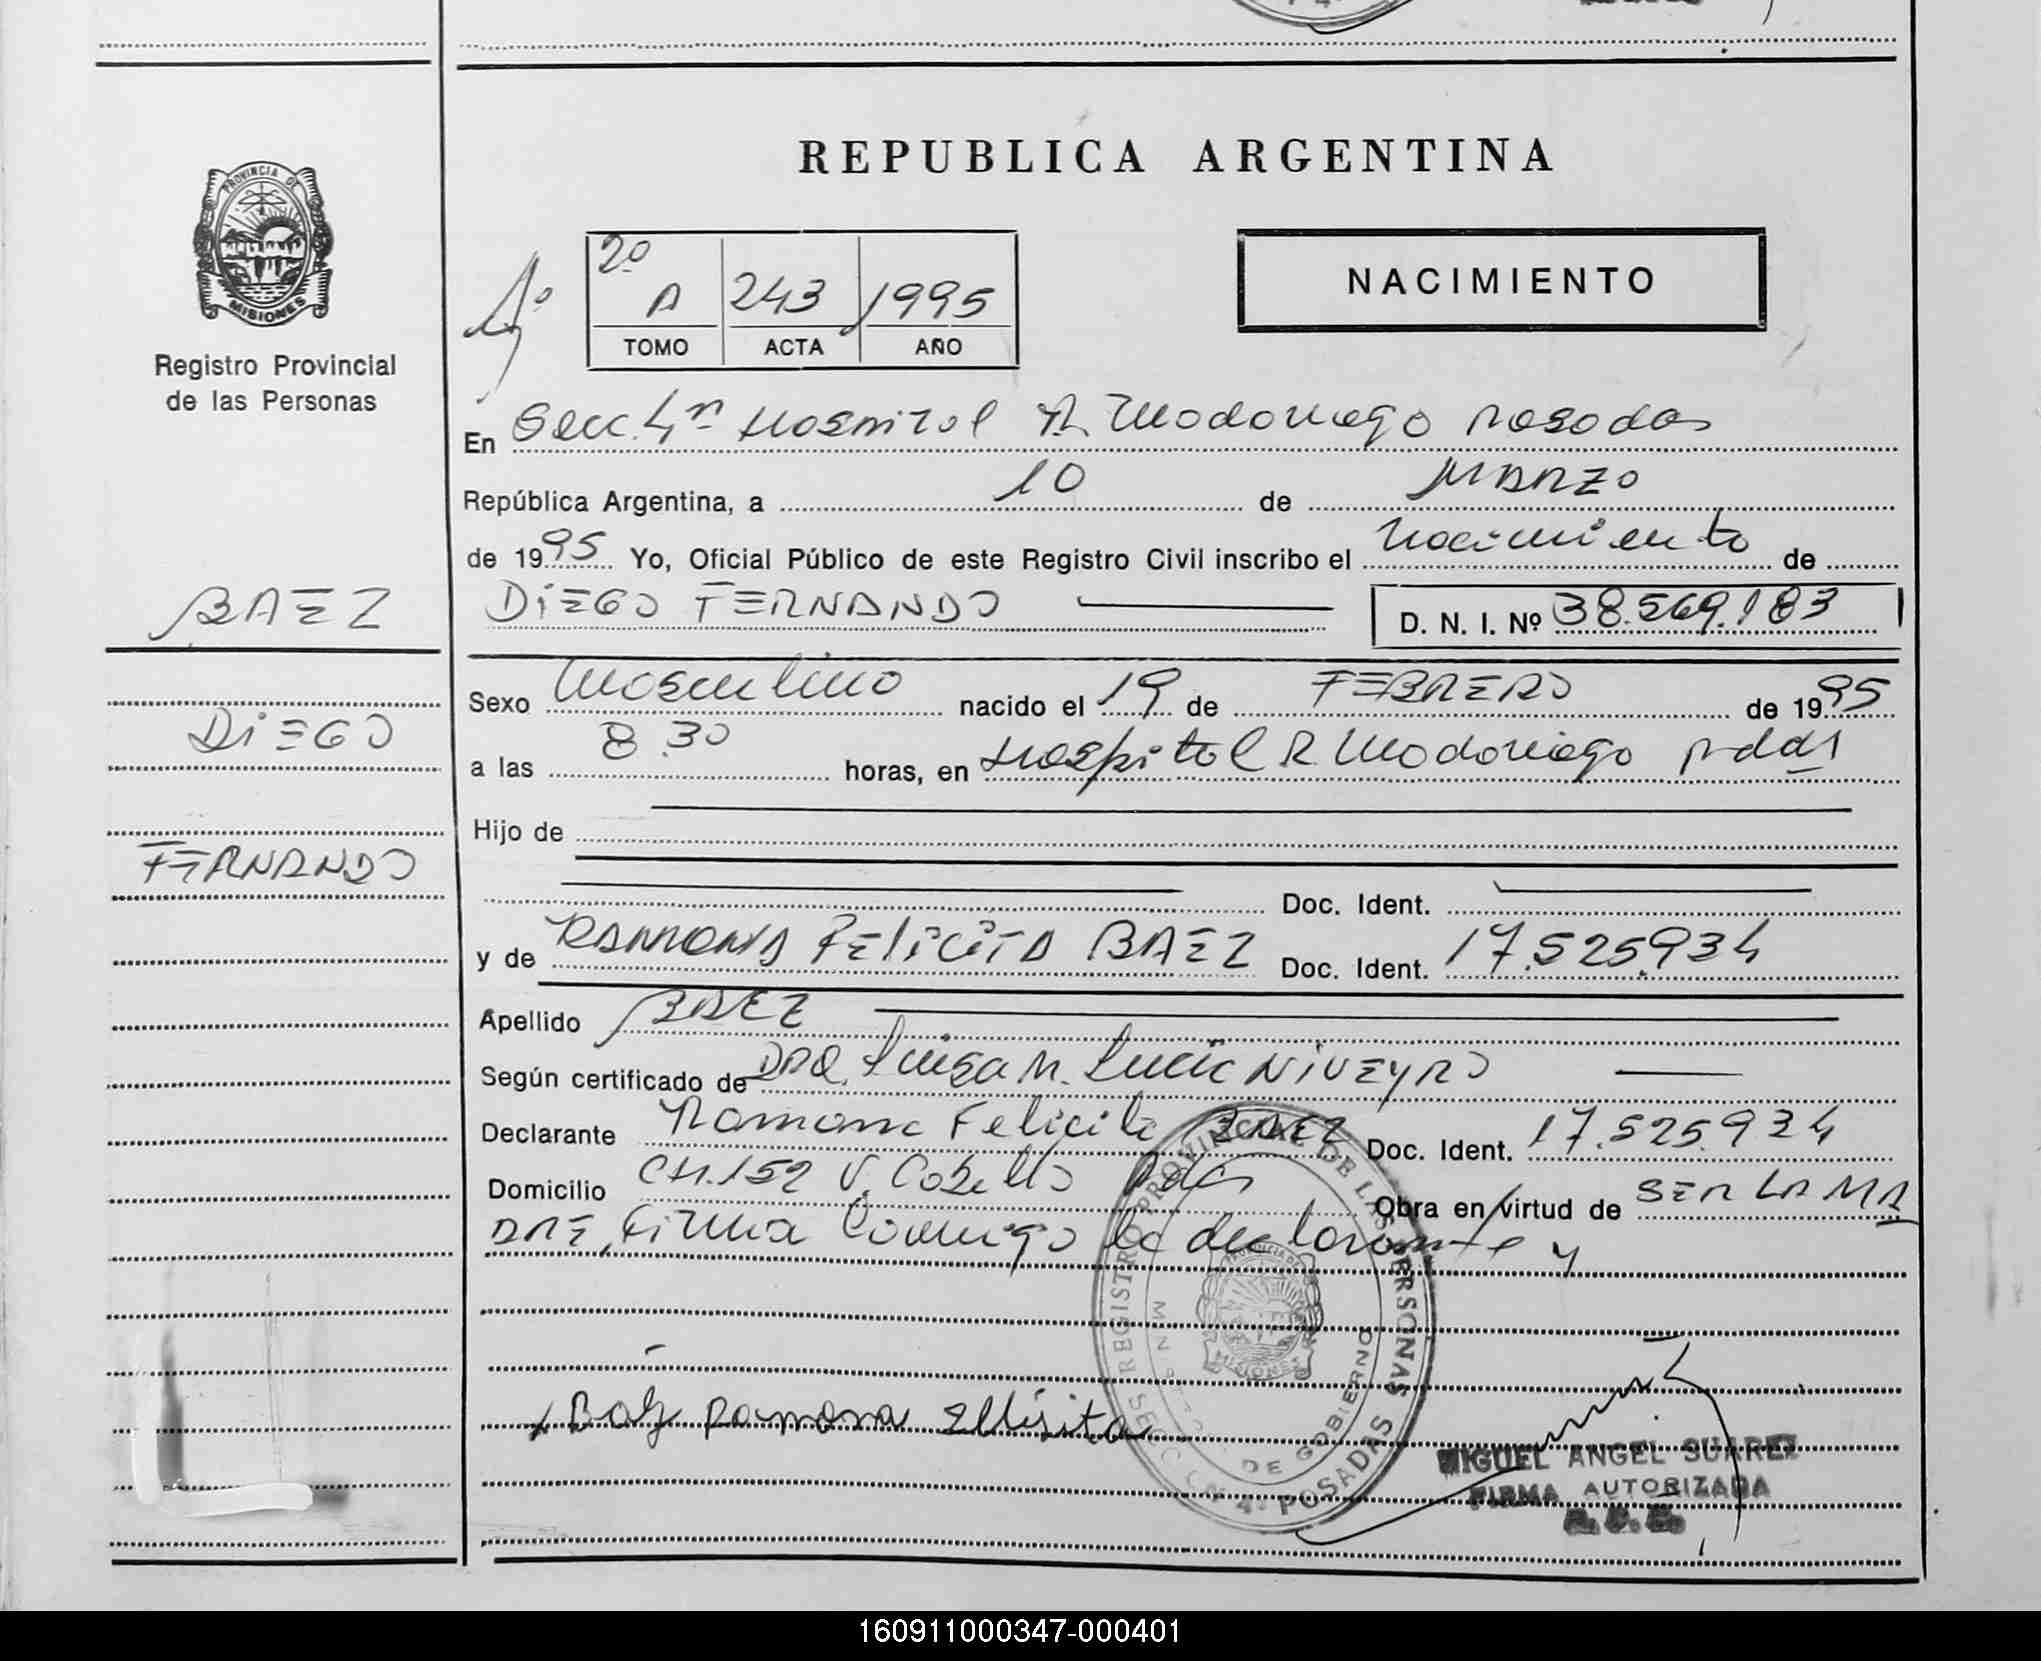 REPUBLICA ARGENTINA
PROVINCIA DE
MISIONES
Registro Provincial
de las Personas
2º A 243 1995
TOMO ACTA AÑO
NACIMIENTO
En Secc. 4ª Hospital R. Madariaga Posadas
República Argentina, a 10 de MARZO
de 1995 Yo, Oficial Público de este Registro Civil inscribo el nacimiento de
BAEZ
DIEGO FERNANDO D. N. I. Nº 38.569.183
Sexo Masculino nacido el 19 de FEBRERO de 1995
DIEGO
a las 8.30 horas, en Hospital R. Madariaga Pdas
Hijo de
FERNANDO
Doc. Ident.
y de RAMONA FELICITA BAEZ Doc. Ident. 17.525.934
Apellido BAEZ
Según certificado de DRA. Luisa M. NIVEYRO
Declarante Ramona Felicita BAEZ Doc. Ident. 17.525.934
Domicilio CH.152 V. Cabello Pdas Obra en virtud de SER LA MA
DRE, Firma Conmigo la declarante y
REGISTRO PROVINCIAL DE LAS PERSONAS
PROVINCIA DE
MISIONES
DE GOBIERNO
SECCION 4ª POSADAS
x Baez Ramona
MIGUEL ANGEL SUAREZ
FIRMA AUTORIZADA
160911000347-000401